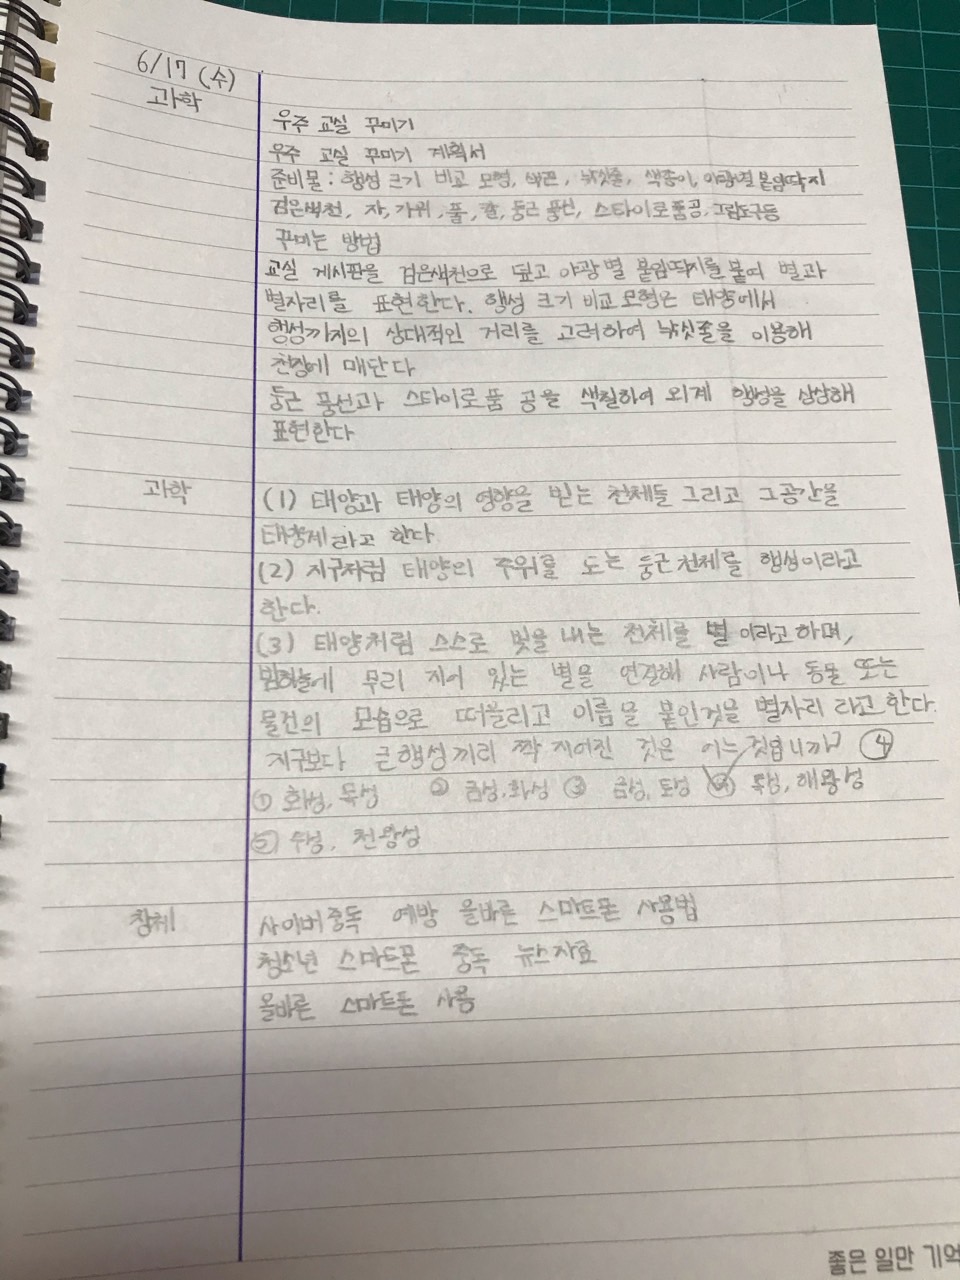 6/17 (수)
과학
우주 교실 꾸미기
우주 교실 꾸미기 계획서
준비물 : 행성 크기 비교 모형, 낚싯줄, 색종이, 야광별 붙임딱지
검은색천, 자, 가위, 풀, 칼, 둥근 풍선, 스타이로폼공, 그림도구등
꾸미는 방법
교실 게시판을 검은색천으로 덮고 야광별 붙임딱지를 붙여 별과
별자리를 표현한다. 행성 크기 비교 모형은 태양에서
행성까지의 상대적인 거리를 고려하여 낚싯줄을 이용해
천장에 매단다
둥근 풍선과 스타이로폼 공을 색칠하여 외계 행성을 상상해
표현한다
과학
(1) 태양과 태양의 영향을 받는 천체들 그리고 그공간을
태양계라고 한다
(2) 지구처럼 태양의 주위를 도는 둥근 천체를 행성이라고
한다.
(3) 태양처럼 스스로 빛을 내는 천체를 별 이라고 하며,
밤하늘에 무리 지어 있는 별을 연결해 사람이나 동물 또는
물건의 모습으로 떠올리고 이름을 붙인것을 별자리 라고 한다.
지구보다 큰행성끼리 짝 지어진 것은 어느 것입니까? ④
① 화성, 목성 ② 금성, 화성 ③ 금성, 토성 ④ 목성, 해왕성
⑤ 수성, 천왕성
창체
사이버중독 예방 올바른 스마트폰 사용법
청소년 스마트폰 중독 뉴스자료
올바른 스마트폰 사용
좋은 일만 기억